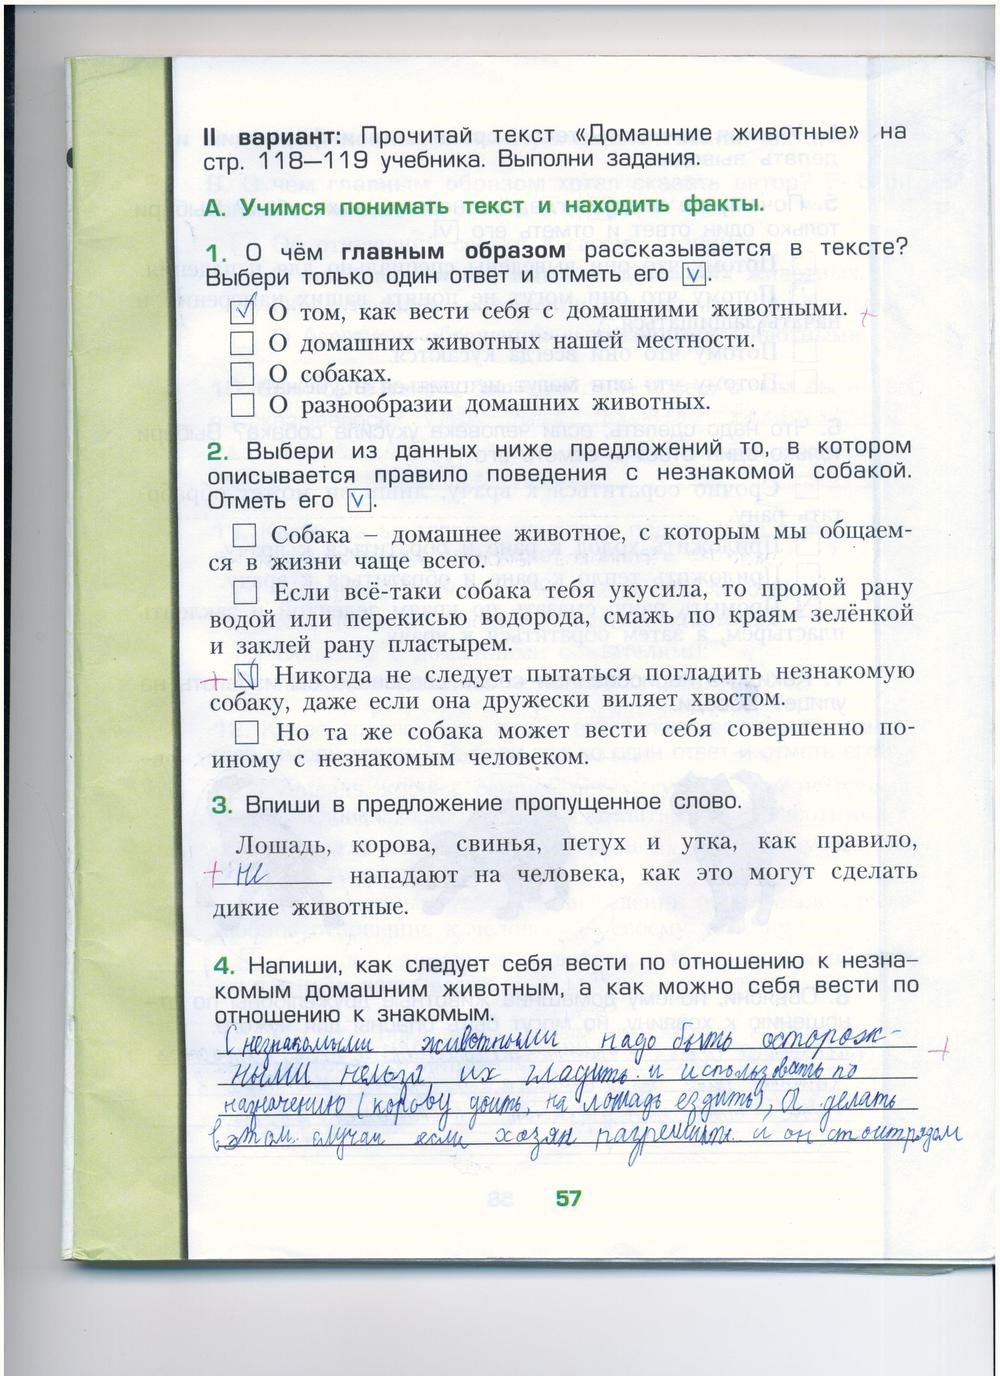 II вариант: Прочитай текст «Домашние животные» на
стр. 118—119 учебника. Выполни задания.
А. Учимся понимать текст и находить факты.
1. О чём главным образом рассказывается в тексте?
Выбери только один ответ и отметь его v.
О том, как вести себя с домашними животными. +
О домашних животных нашей местности.
О собаках.
О разнообразии домашних животных.
2. Выбери из данных ниже предложений то, в котором
описывается правило поведения с незнакомой собакой.
Отметь его v.
Собака – домашнее животное, с которым мы общаем-
ся в жизни чаще всего.
Если всё-таки собака тебя укусила, то промой рану
водой или перекисью водорода, смажь по краям зелёнкой
и заклей рану пластырем.
+ Никогда не следует пытаться погладить незнакомую
собаку, даже если она дружески виляет хвостом.
Но та же собака может вести себя совершенно по-
иному с незнакомым человеком.
3. Впиши в предложение пропущенное слово.
Лошадь, корова, свинья, петух и утка, как правило,
+ не нападают на человека, как это могут сделать
дикие животные.
4. Напиши, как следует себя вести по отношению к незна-
комым домашним животным, а как можно себя вести по
отношению к знакомым.
С незнакомыми животными надо быть осторож-
ными нельзя их гладить и использовать по +
назначению (корову доить, на лошадь ездить), А делать
в этом случаи если хозян разрешит и он стоит рядом
57